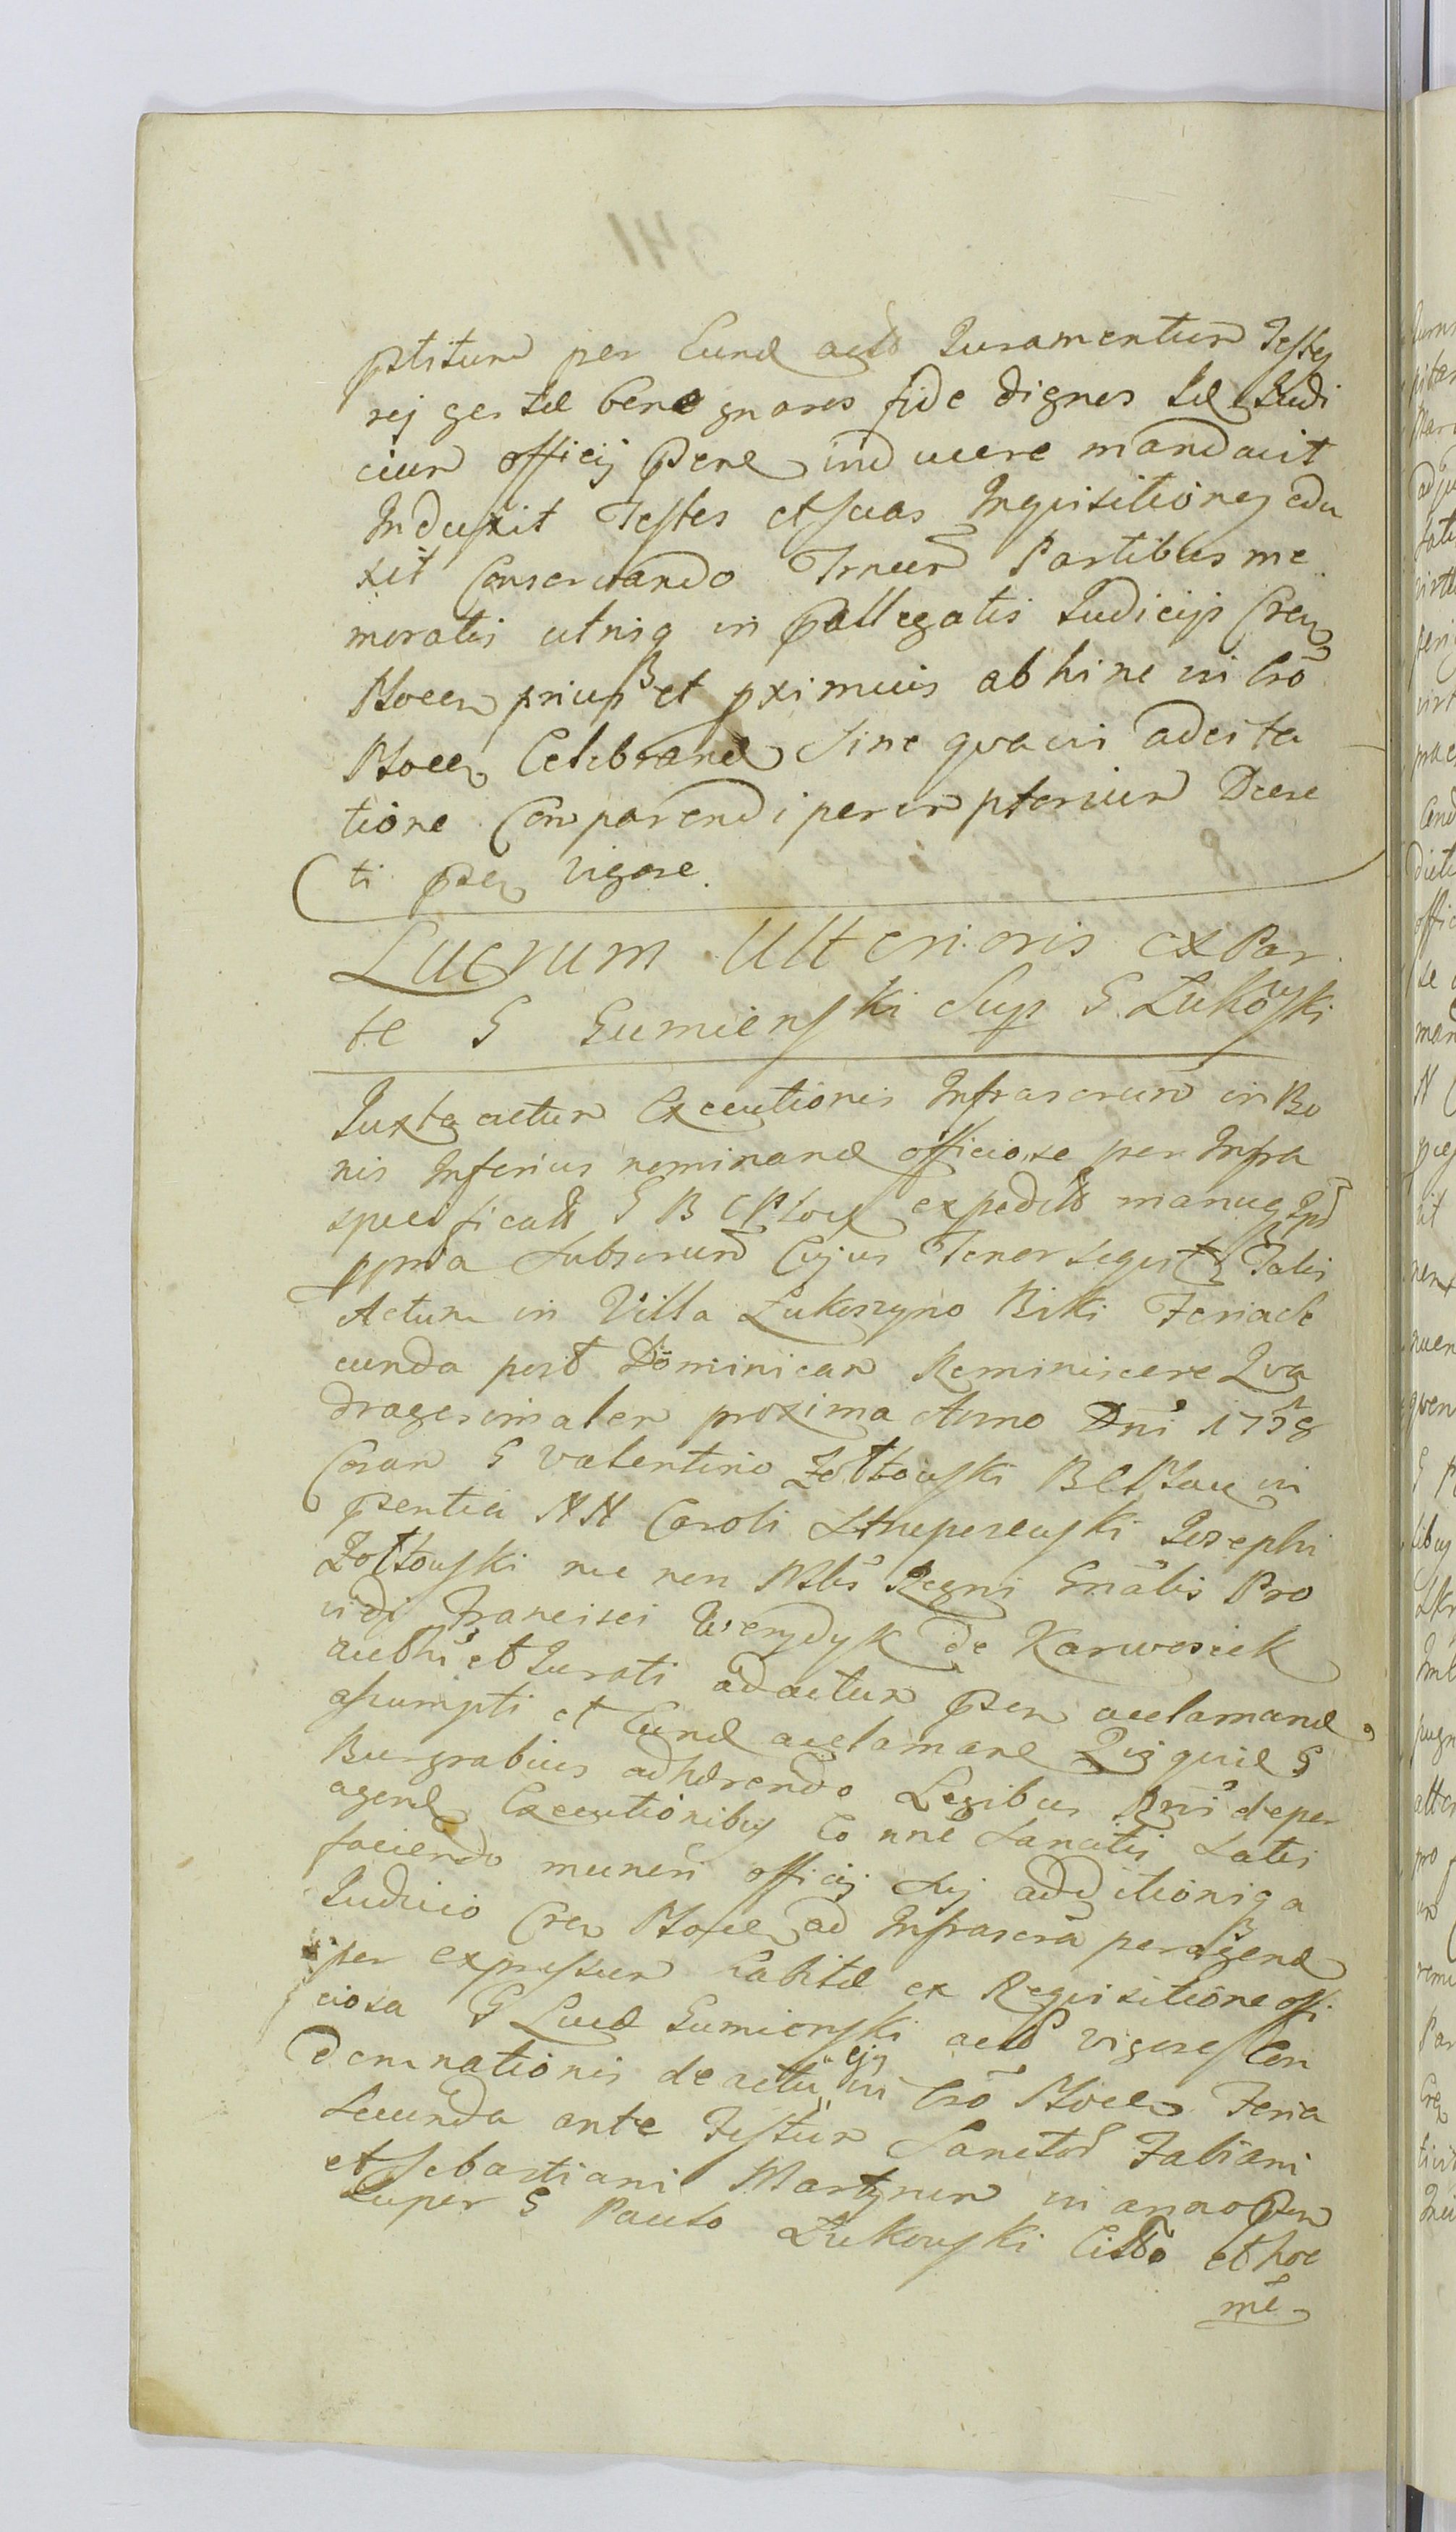 pstitum per Eund acto Juramentum Testes
rej gestae bene gnaros fide dignos ad Judi
cium officij psens inducere mandavit
Induxit Testes et suas Inquisitiones edu
xit Conservando Trnum Partibus me
moratis utrisq in pallegatis Judicijs Cren
Plocen prius et pximius abhinc in Cro
Plocen Celebrand Sine quavis adcita
tione Comparendi peremptorium Decre
ti psen vigore.
Lucrum Ulterioris ex Par
te G Gumienski Sup G Łukowski
Juxta actum Executionis Infrascrum in Bo
nis Inferius nominand officiose per Infra
specificatt G B C Ploc expeditt manuq Ips
ppria Subscrum Cujus Tenor sequitr Talis
Actum in Villa Łukoszyno Biki Feria Se
cunda post Dominicam Reminiscere Qua
dragesimalem proxima Anno Dni 1738
Coram G Valentino Żołtowski B C Ploc in
psentia NN Caroli Josephi
Żołtowski nec non Mlis Regni Gnalis Pro
vidi Francisci Werydyk de Karwosiek
authi et Jurati ad actum psen
assumpti et Eund acclamand Quiquid G
Burgrabius adhaerendo Legibus Rni de per
agend Executionibus Eo nne Sancitis Satis
faciendo muneri officij Sui additionis a
Judicio Cren Plocen ad Infrascra peragend
per expressum habitae ex Requisitione offi
ciosa G Lud Gumienski acto vigore Con
demnationis de actu ejq in Cro Plocen Feria
Secunda ante Festum Sanctor Fabiani
et Sebastiani Martyrum in anno psen
Super G Paulo Łukowski Citto et hoc
me